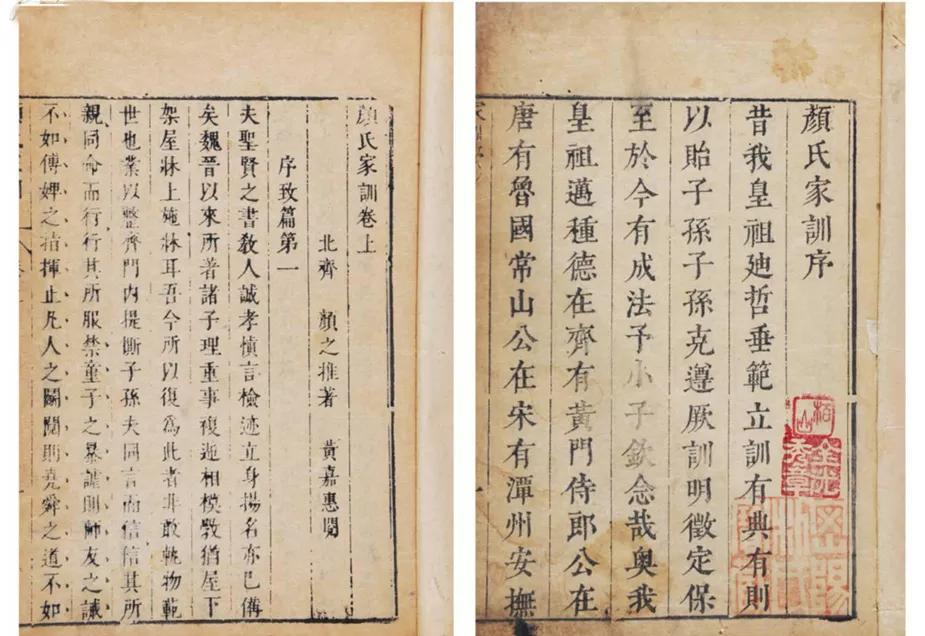 顏氏家訓序
昔我皇祖廸哲垂範立訓有典有則
以貽子孫子孫克遵厥訓明徵定保
至於今有成法予小子欽念哉奥我
皇祖邁種德在齊有黃門侍郎公在
唐有魯國常山公在宋有潭州安撫
顏氏家訓卷上
北齊 顏之推著 黃嘉惠閱
序致篇第一
夫聖賢之書教人誠孝慎言檢迹立身揚名亦已備
矣魏晉以來所著諸子理重事複遞相模斆猶屋下
架屋牀上施牀耳吾今所以復為此者非敢軌物範
世也業以整齊門内提撕子孫夫同言而信信其所
親同命而行行其所服禁童子之暴謔則師友之誡
不如傅婢之指揮止凡人之鬭鬩則堯舜之道不如